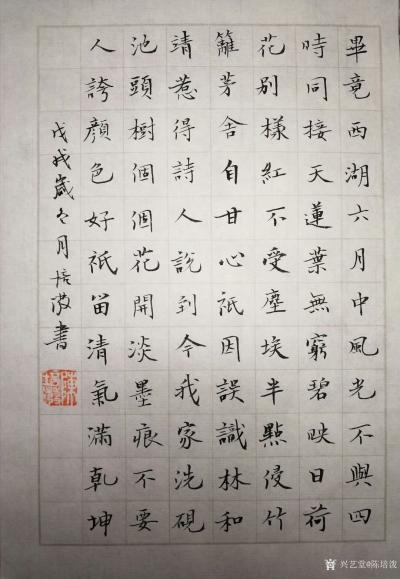 畢竟西湖六月中風光不與四
時同接天蓮葉無窮碧映日荷
花別樣紅不受塵埃半點侵竹
籬茅舍自甘心祇因誤識林和
靖惹得詩人說到今我家洗硯
池頭樹個個花開淡墨痕不要
人誇顏色好祇留清氣滿乾坤
戊戌歲冬月培潑書
兴艺堂@陈培泼